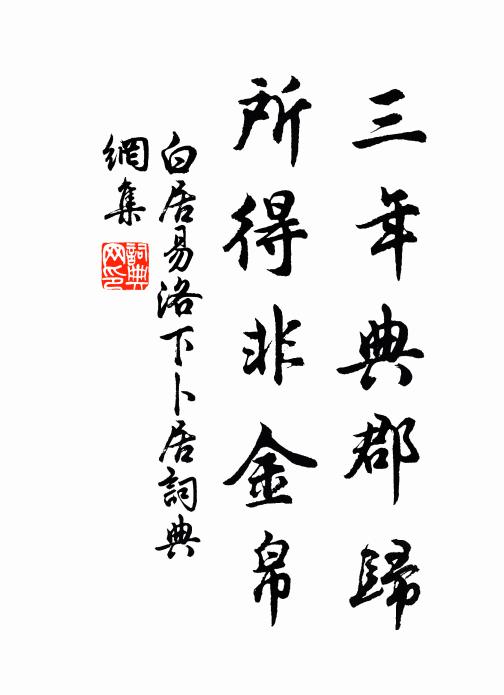 三年典郡歸
所得非金帛
白居易洛下卜居詞典
網集
詞典
网印